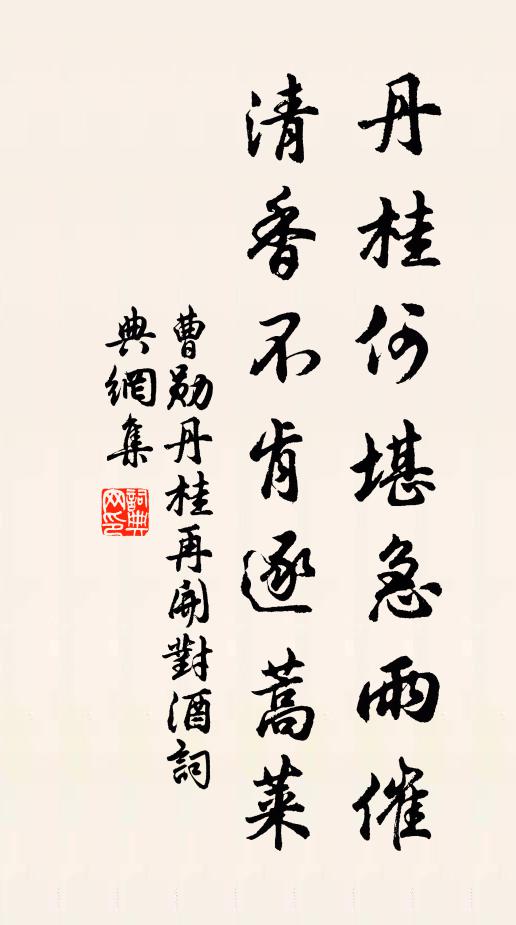 丹桂何堪急雨催
清香不肯逐蒿萊
曹勛丹桂再開對酒詞
典網集
詞典
网印